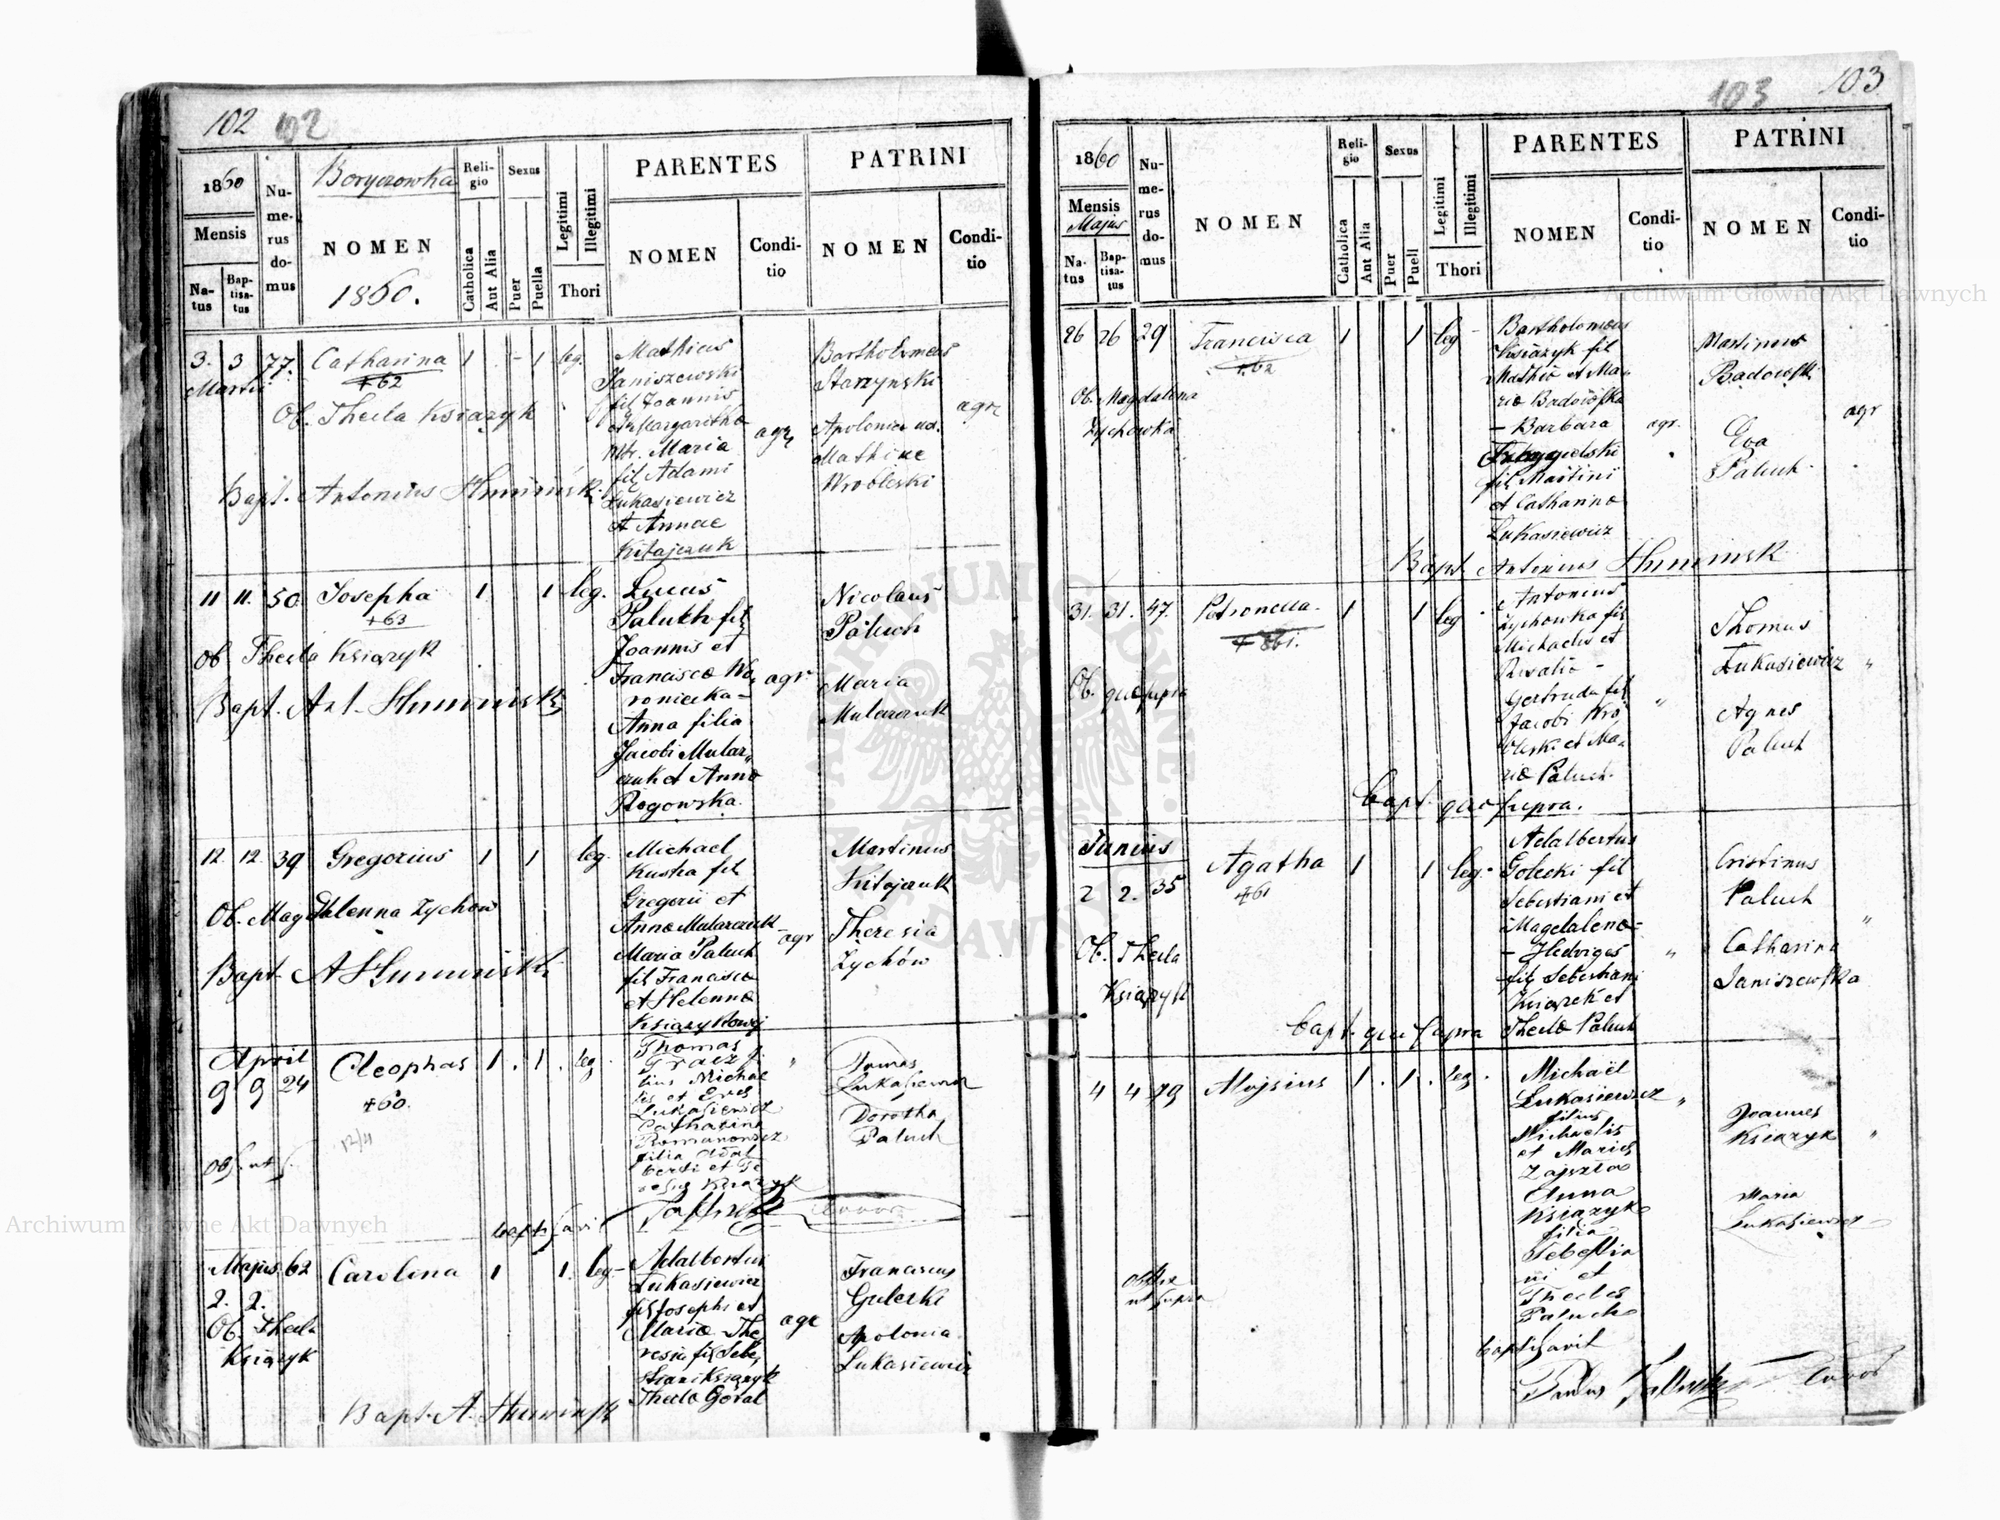 102 102
1860
Mensis
Na-
tus
Bap-
tisa-
tus
Nu-
me-
rus
do-
mus
Boryczowka
NOMEN
1860.
Reli-
gio
Catholica
Aut Alia
Sexus
Puer
Puella
Legitimi
Illegitimi
Thori
PARENTES
NOMEN
Condi-
tio
PATRINI
NOMEN
Condi-
tio
3. 3 77. Catharina 1 - 1 leg.
Martii
+62
Ob. Thecla Ksiazyk
Bapt. Antonius
Mathias
Janiszewski
fil Joannis
et Margaritha
Maria
fil Adami
Lukasiewicz
et Annae
Kitajczuk
agr
Bartholomeus
Starzynski
Apolonia
Mathiae
Wrobleski
agr
11 11. 50 Josepha 1. 1 leg.
+63
Ob Thecla Ksiazyk
Bapt. Ant.
Lucas
Palukh fil
Joannis et
Francisca Wo
roniecka
Anna filia
Jacobi Mular
czuk et Anna
Rogowska.
agr
Nicolaus
Paluch
Maria
Mularczuk
12 12. 39 Gregorius 1 1 leg.
Ob. Magdalenna Zychow
Bapt. A
Michael
Kusha fil
Gregorii et
Anna Mularczuk
Maria Paluch
fil Francisca
et Helenna
Ksiazykowej
agr
Martinus
Kitajczuk
Theresia
Zychów
April
9 9 24 Cleophas 1. 1. leg
+60.
12/4
Thomas
lius Michae
lis et Eves
Lukasiewicz
Catharina
Romanowicz
filia Adal
berti et Te
Tomas
Lukasiewicz
Dorotha
Paluch
Majus 62 Carolina 1 1. leg-
2. 2.
Ob. Thecla
Ksiazyk
Adalbertus
Lukasiewicz
fil Josephi et
Maria The
resia fil Seba
stiani Ksiazyk
Thecla Goral
agr
Franciscus
Guleski
Apolonia
Lukasiewicz
Bapt. A.
103 103
1860
Mensis
Majus
Na-
tus
Bap-
tisa-
tus
Nu-
me-
rus
do-
mus
NOMEN
Reli-
gio
Catholica
Aut Alia
Sexus
Puer
Puell
Legitimi
Illegitimi
Thori
PARENTES
NOMEN
Condi-
tio
PATRINI
NOMEN
Condi-
tio
26 26 29 Francisca 1 1 leg
+62
Ob. Magdalena
Zychowka
Bartholomeus
Ksiazyk fil
Mathia et Ma-
ria Badowska
- Barbara
fil Martini
et Catharina
Lukasiewicz
agr.
Martinus
Badowski
Eva
Paluch
agr
Bapt Antonius
31. 31. 47. Petronella. 1 1 leg
+861.
Ob. qua supra
Antonius
Zychowka fil
Michaelis et
Rosalia -
Gertruda fil
Jacobi Wro
bleski et Ma
ria Paluch.
Thomas
Lukasiewicz "
Agnes
Paluch
bapt. qui supra.
Junius
2 2. 35 Agatha 1 1 leg.
+61
Ob. Thecla
Ksiazyk
Adalbertus
Golecki fil
Sebastiani et
Magdalena-
- Hedviges
fil Sebastiani
Ksiazek et
Thecla Paluch
Cristinus
Paluch
Catharina
Janiszewska
bapt. qui supra
4 4 79 Alojsius 1. 1. leg.
ut supra
Michaël
Lukasiewicz "
filius
Michaelis
et Maries
Anna
Ksiazyk
filia
Sebastia
ni et
Thecles
Paluch
Joannes
Ksiazyk "
Maria
Lukasiewicz
baptisavit
Archiwum Główne Akt Dawnych
Archiwum Główne Akt Dawnych
ARCHIWUM GŁÓWNE AKT DAWNYCH